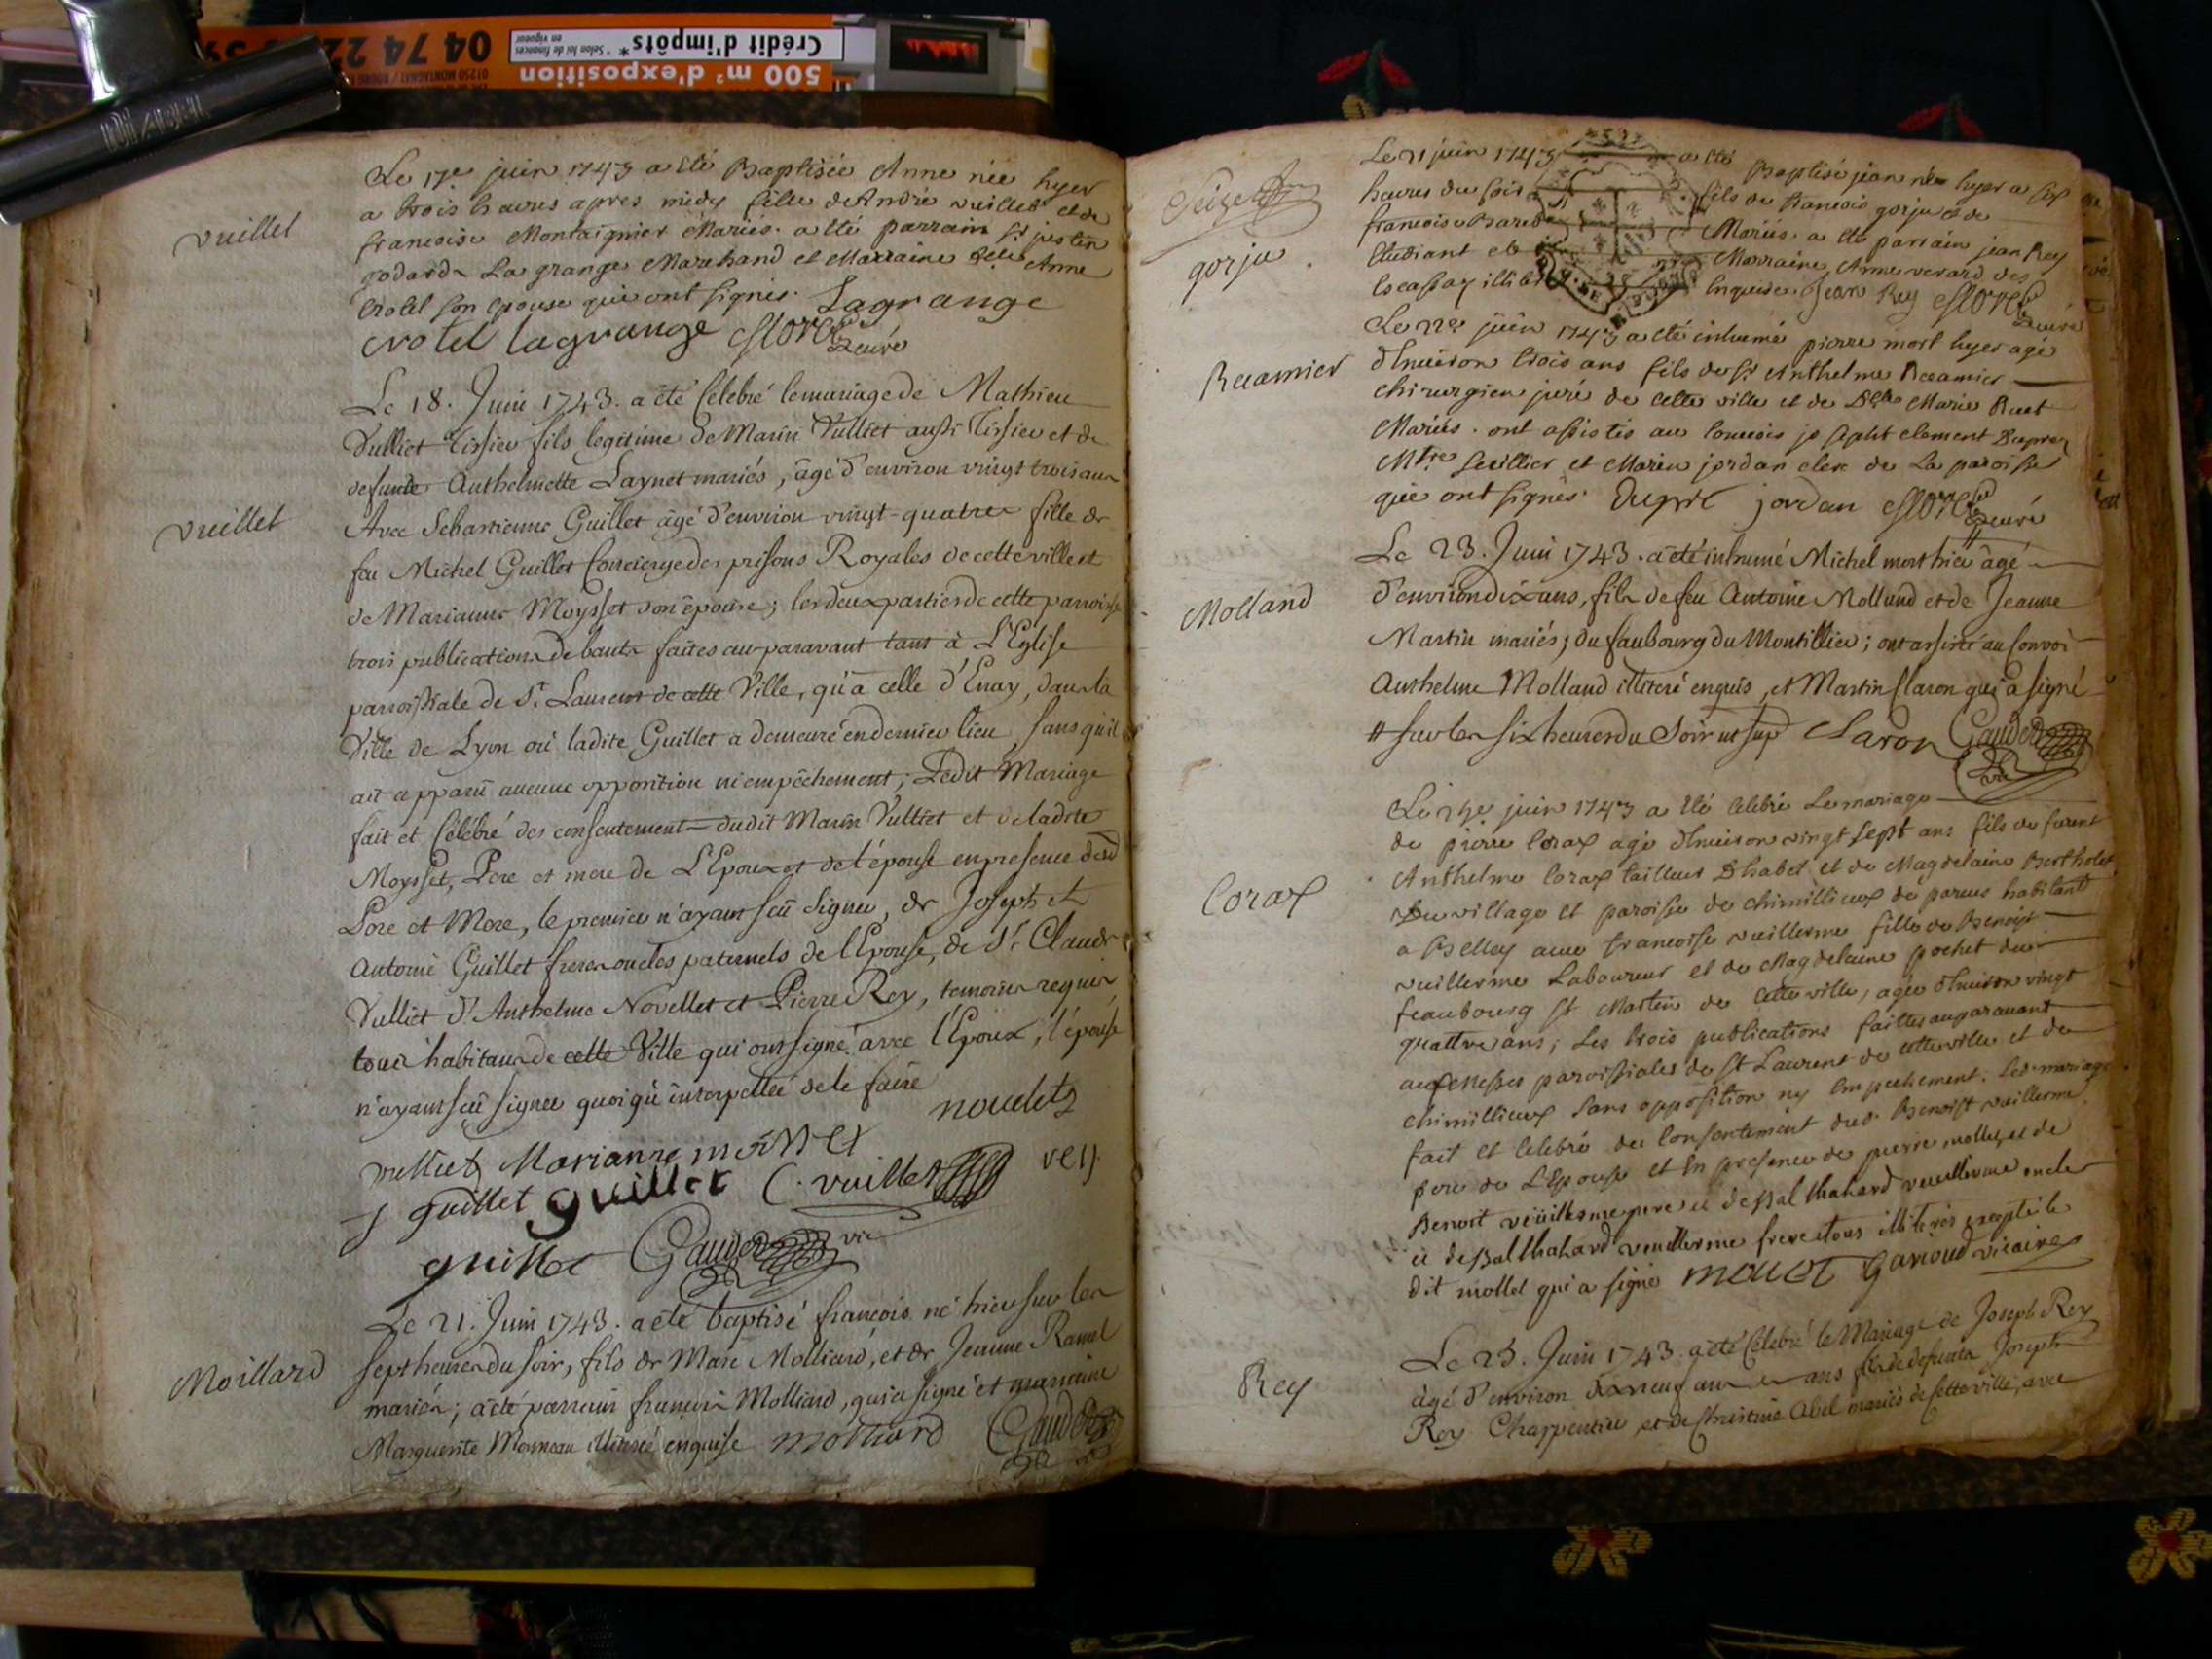 04 74 22
500 m² d'exposition
Crédit d'impôts*
* Selon loi de finances
en vigueur
vuillet
Le 17e juin 1743 a été Baptisée Anne née hyer
a trois heures apres midy fille de André vuillet et de
francoise Montaignier Mariés. a été parrain Sr justin
godard La grange Marchand et Marraine Dlle Anne
crotel son epouse qui ont signés. Lagrange
crotel lagrange curé
vuillet
Le 18. Juin 1743. a été Célebré le mariage de Mathieu
Vulliet Tissieu fils legitime de Marin Vulliet aussi Tissieu et de
defunte Anthelmette Laynet mariés, âgé d'environ vingt trois ans
Avec Sebastienne Guillet âgé d'environ vingt-quatre fille de
feu Michel Guillet Concierge des prisons Royales de cette ville et
de Marianne Moysset son épouse; les deux parties de cette parroisse
trois publications de bans faites au-paravant tant à L'Eglise
parroissiale de St. Laurent de cette Ville, qu'à celle d'Enay, dans la
Ville de Lyon où ladite Guillet a demeuré en dernier lieu, sans qu'il
ait apparû aucune opposition ni empêchement; Ledit Mariage
fait et Célébré des consentement dudit Marin Vulliet et de ladite
Moysset, Pere et mere de L'Epoux et de l'épouse en presence desd
Pere et Mere, le premier n'ayant sçû signer, de Joseph et
Antoine Guillet freres oncles paternels de l'Epouse, de Sr. Claude
Vulliet Sr Anthelme Novellet et Pierre Rey, temoins requis
tous habitans de cette Ville qui ont signé avec l'Epoux, l'épouse
n'ayant sçû signer quoiqu'interpellée de le faire
nouelet
vulliet Marianne moisset
J guillet guillet C. vuillet rey
guillet Gaudet vic
Moillard
Le 21. Juin 1743. a été baptisé françois né hier sur les
sept heures du soir, fils de Marc Molliard, et de Jeanne Ramel
mariés; a été parrain françois Molliard, qui a signé et marraine
Marguerite Monneau illiterée enquise molliard Gaudet
gorju
Le 21 juin 1743 a été Baptisé jean né hyer a six
heures du soir fils de francois gorju et de
francoise Mariés. a été parrain jean Rey
Etudiant et Marraine Anne verard des
enquise. Jean Rey curé
Recamier
Le 22e juin 1743 a été inhumé pierre mort hyer agé
d'Enuiron trois ans fils de Sr Anthelme Recamier
chirurgien juré de cette ville et de Dlle Marie Ruet
Mariés. ont assistés au Conuois jo Bapt clement Dupre
Mtre Sellier et Marin jordan clerc de La paroisse
qui ont signés. Dupré jordan curé
Molland
Le 23. Juin 1743. a été inhumé Michel mort hier âgé #
d'environ dix ans, fils de feu Antoine Molland et de Jeanne
Martin mariés; du faubourg du Montillier; ont assisté au Convoi
Anthelme Molland illiteré enquis, et Martin Claron qui a signé
# sur les six heures du Soir ut sup Claron Gaudet
vic
Corax
Le 25e juin 1743 a été celebré Le mariage
de pierre Corax agé d'Enuiron vingt sept ans fils de feu
Anthelme Corax tailleur D'habet et de Magdelaine Bertholet
Du village et paroisse de chimillieux de parues habitant
a Belley auec francoise vuillerme fille de Benoist
vuillerme Laboureur et de Magdelaine pochet du
feaubourg St Martin de Cette ville, agée d'Enuiron vingt
quattre ans; Les trois publications faittes auparauant
aux Messes paroissiales de St Laurent de cette ville et de
chimillieux Sans opposition ny Empechement. Led. mariage
fait et Celebré du Consentement dud. Benoist vuillerme
pere de L'Epouse et En presence de pierre mollet, et de
Benoit vüillerme pere et de Balthahard vuillerme oncle
et de Balthahard vuillerme frere tous illiterés excepté le
dit mollet qui a signé mollet Garioud vicaire
Rey
Le 25. Juin 1743. a été Célebré le Mariage de Joseph Rey
âgé d'environ dix neuf ans fils de defunts Joseph
Rey Charpentier et de Christine Abel mariés de Cette ville, avec